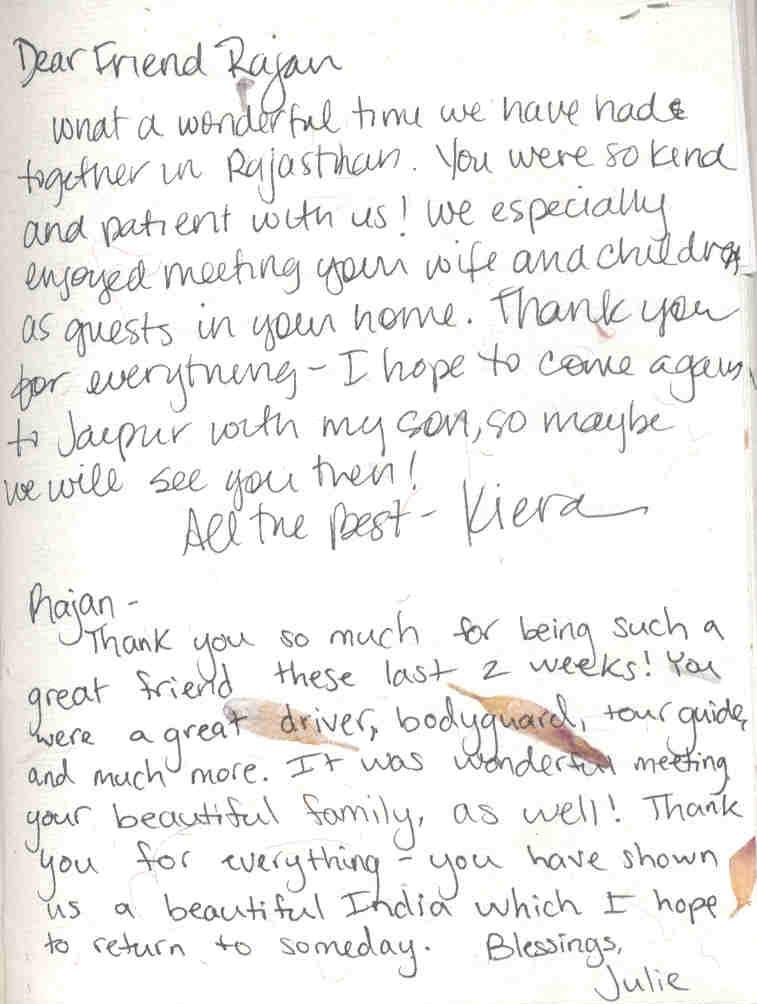 Dear Friend Rajan
what a wonderful time we have had
together in Rajasthan. You were so kind
and patient with us! We especially
enjoyed meeting your wife and children
as guests in your home. Thank you
for everything - I hope to come again
to Jaipur with my son, so maybe
we will see you then!
All the Best - Kiera
Rajan -
Thank you so much for being such a
great friend these last 2 weeks! You
were a great driver, bodyguard, tour guide,
and much more. It was wonderful meeting
your beautiful family, as well! Thank
you for everything - you have shown
us a beautiful India which I hope
to return to someday. Blessings,
Julie